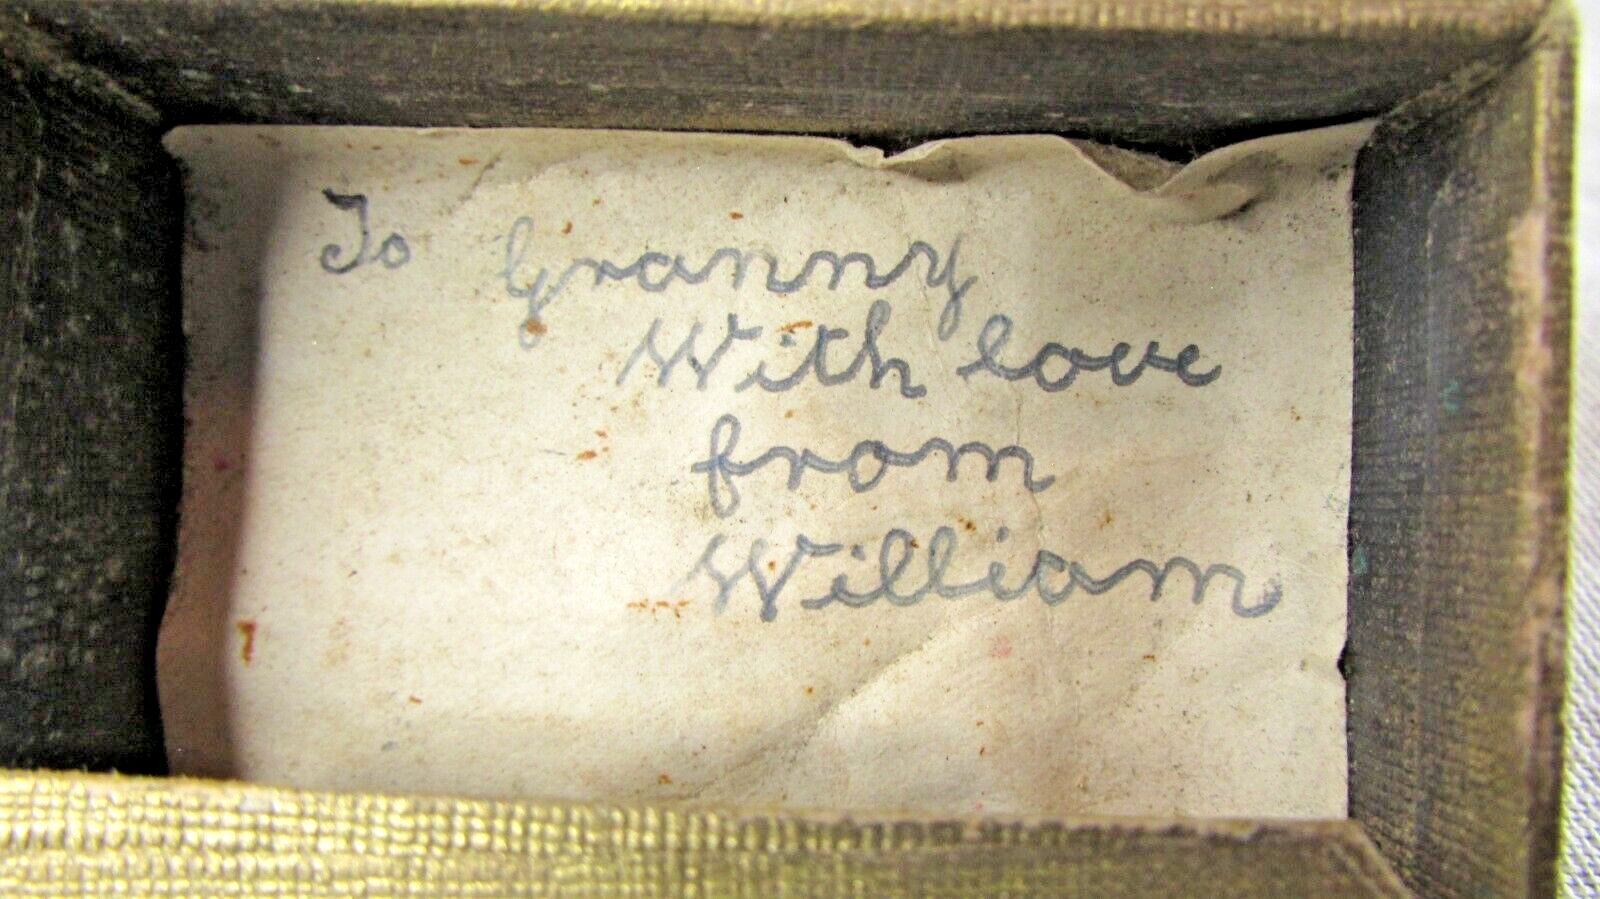 To Granny
With love
from
William